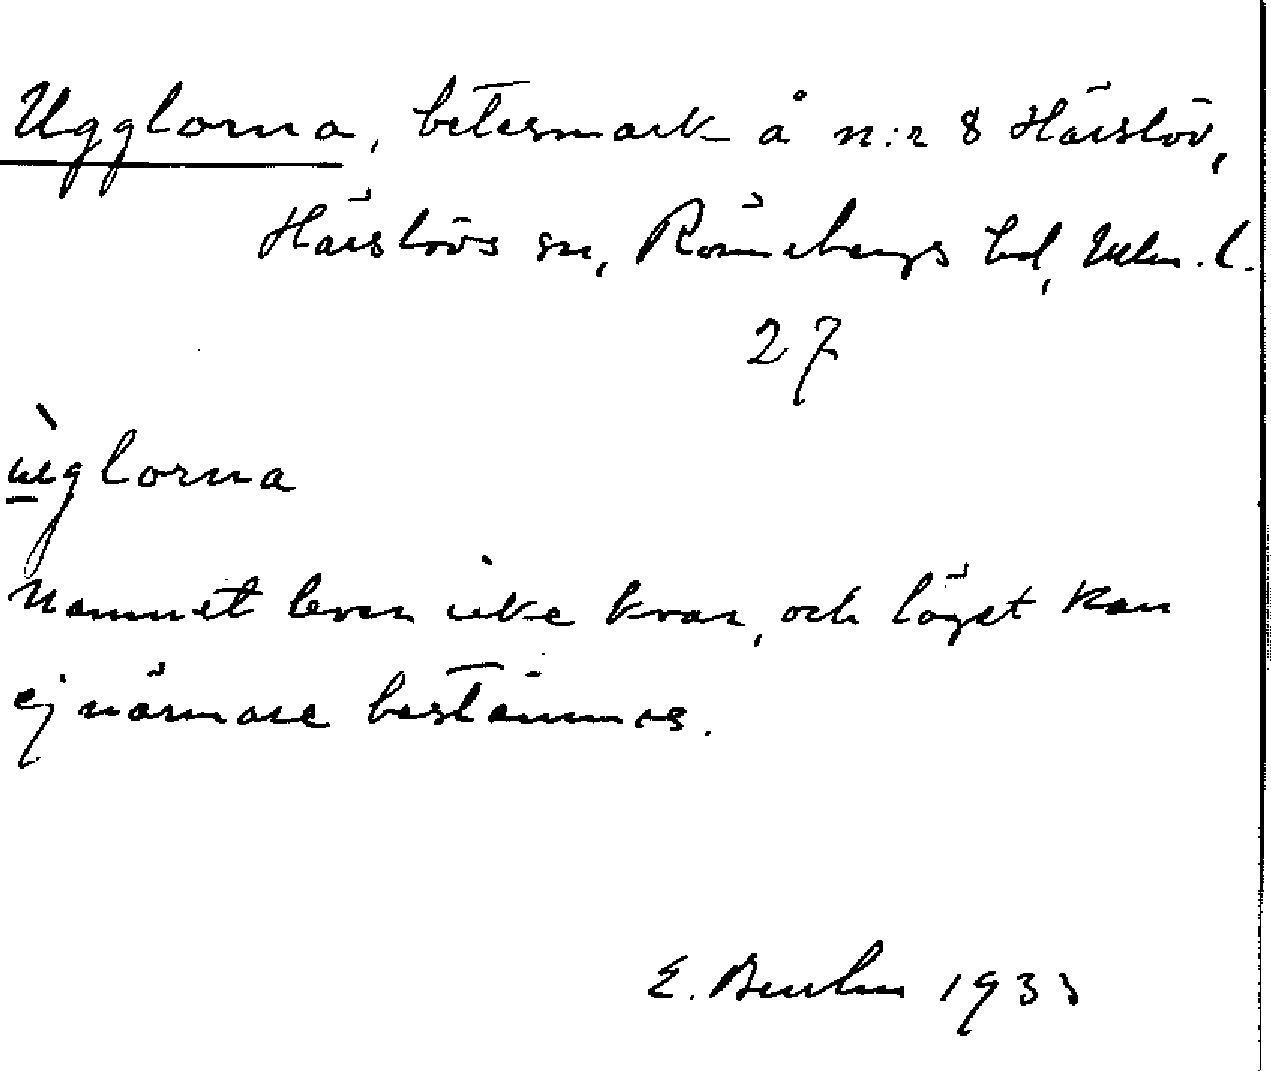 Ugglorna, betesmark å n:r 8 Härslöv,
Härslövs sn, Rönnebergs hd, Mlm. l.
27
ùglorna
Namnet lever icke kvar, och läget kan
ej närmare bestämmas.
E. 193